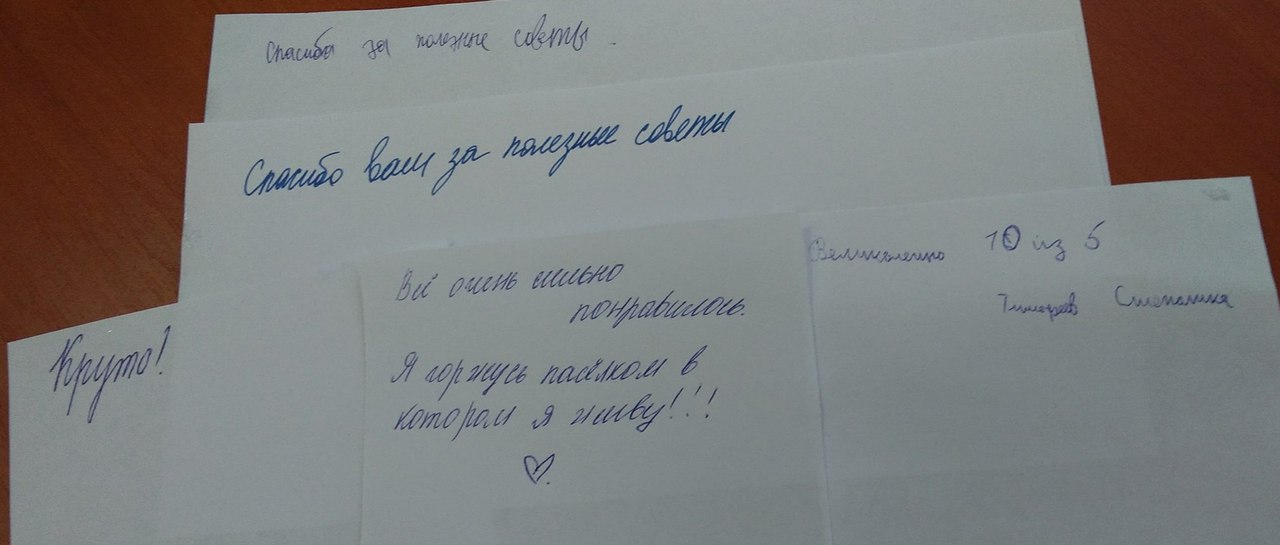 Спасибо за полезные советы.
Спасибо вам за полезные советы
Всё очень сильно
понравилось.
Я горжусь посёлком в
котором я живу!!!
Великолепно 10 из 5
Тимофеев
Круто!